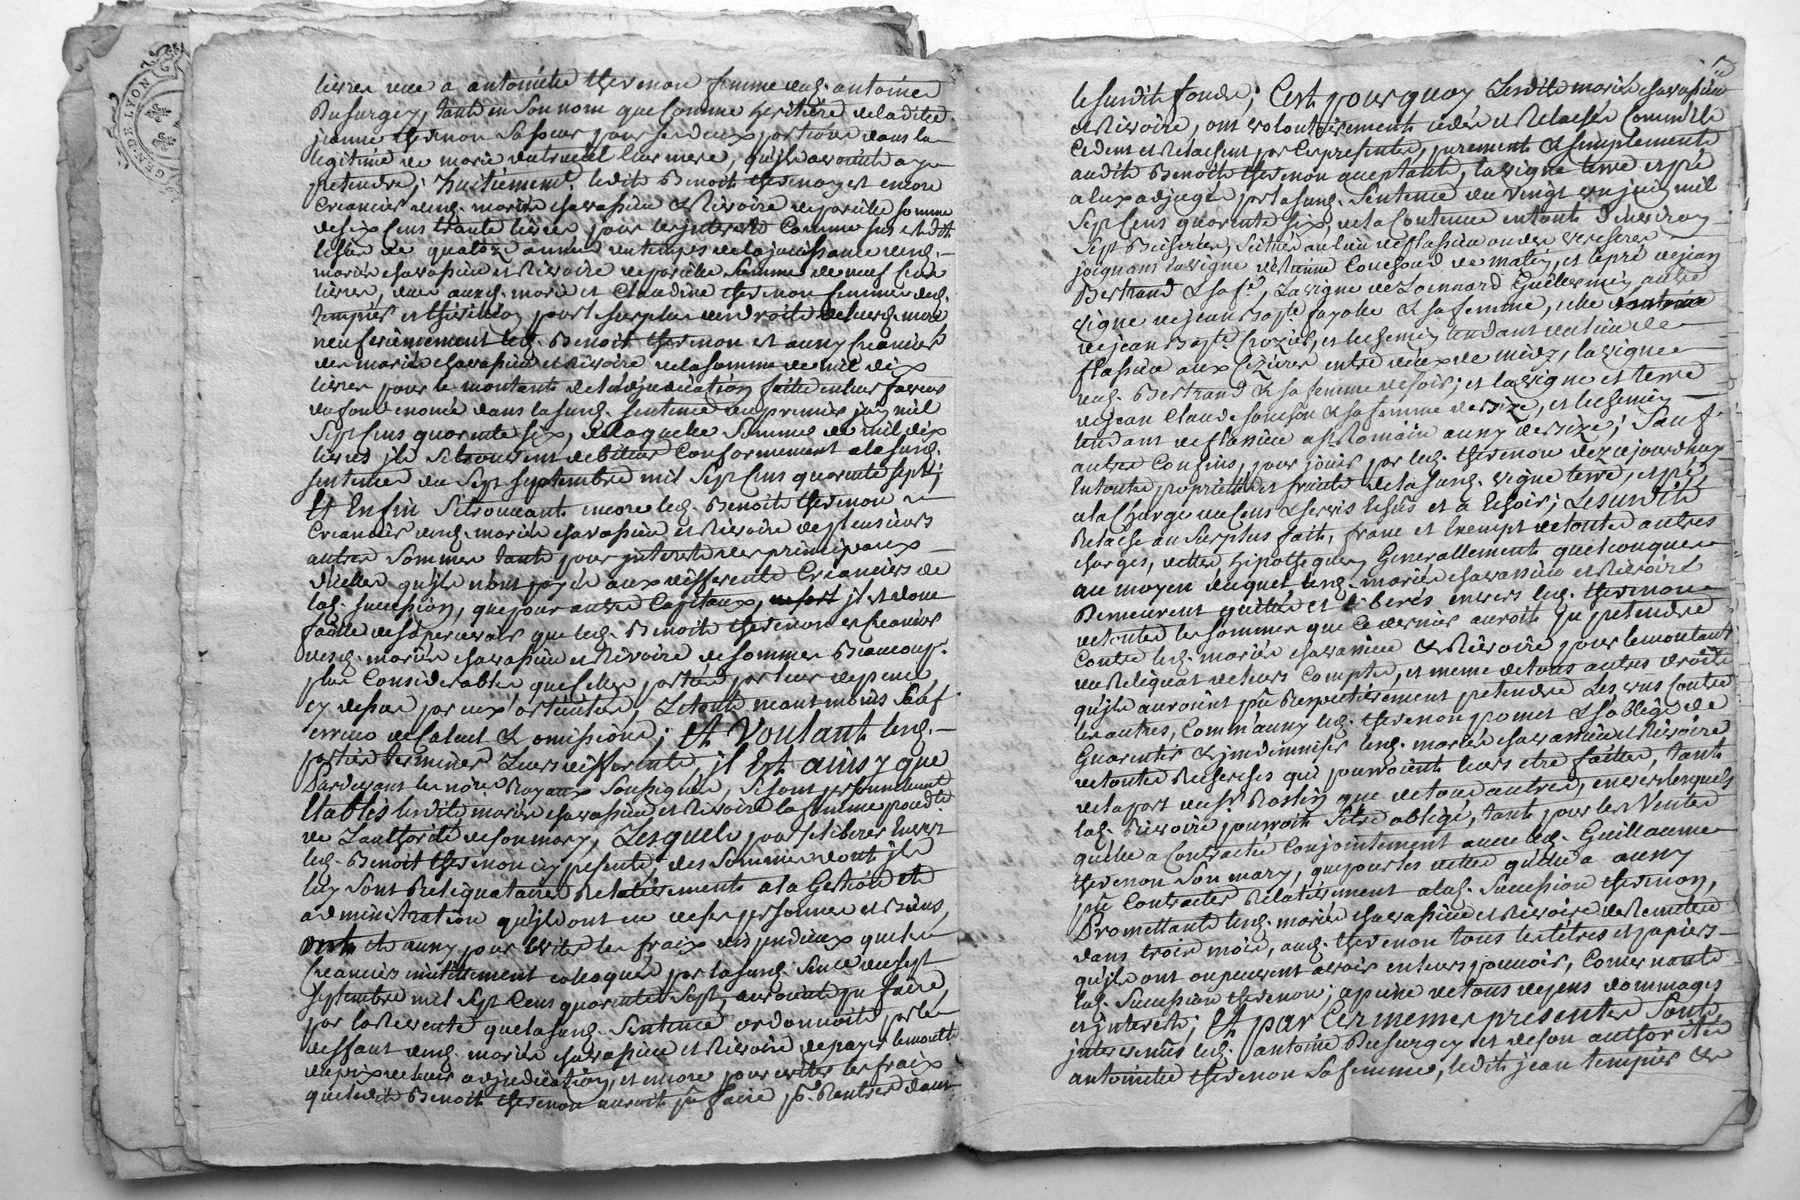 GEN. DE LYON
livres due a antoinette thevenon femme dud. antoine
Dufurgey, tant en son nom que comme heritiere de ladite
jeanne thevenon sa soeur pour ses deux portions dans la
legitime de marie leur mere, qu'ils avoint a y
pretendre; huitiement, ledit Benoit thevenon est encore
creancier desd. mariés chavassieu et Rivoire de pareille somme
de six cens trante livres pour les interets comme sus est dit
de quatoze années du temps de la jouissance desd.
mariés chavassieu et Rivoire de pareille somme de neuf cens
livres, dues auxd. marie et Claudine thevenon femmes desd.
tempier et pour le surplus des droits de leurd. mere
neufviemement led. Benoit thevenon est aussy creancier
des mariés chavassieu et Rivoire de la somme de mil dix
livres pour le montant de l'adjudication faitte en leur faveur
du fond enomé dans la susd. sentence du premier juin mil
sept cens quarente six, de laquelle somme de mil dix
livres ils se trouvent debiteurs conformement a la susd.
sentence du sept septembre mil sept cens quarente sept;
Et Enfin se trouvant encore led. Benoit thevenon
creancier desd. mariés chavassieu et Rivoire de plusieurs
autres sommes tant pour interets des principaux
d'icelles qu'ils n'ont payés aux differents creanciers de
lad. succession, que pour autres capitaux, il est donc
facille de s'apercevoir que led. Benoit thevenon est creancier
desd. mariés chavassieu et Rivoire de sommes Beaucoup
plus considerables que celles portées par leur depense
cy dessus par eux articulées, Le tout neantmoins sauf
erreur de calcul et omissions; Et Voulant lesd.
parties terminer Leurs differents, il Est ainsy que
Pardevant les nores Royaux soussignés, se sont personnelement
Etablis lesdits mariés chavassieu et Rivoire la femme procedte
de L'authorité de son mary, Lesquels pour se liberer Envers
led. Benoit thevenon cy present, des sommes dont ils
luy sont Reliquataires Relativement a la Gestion et
administration qu'ils ont eu de ses personnes et Biens,
et aussy pour eviter les fraix que les
creanciers utillement coloqués par la susd. sentce du sept
septembre mil sept cens quarente sept, auroient pu faire
par la Revente que la susd. sentence ordonnoit par le
deffaut desd. mariés chavassieu et Rivoire de payer le montt
du prix de leur adjudication, et encore pour eviter les fraix
que ledit Benoit thevenon auroit pu faire pr Rentrer dans
le susdit fonds; C'est pourquoy Lesdits mariés chavassieu
et Rivoire, ont volontairement cedés et Relachés comm'ils
cedent et Relachent par ces presentes, purement et simplement
audit Benoit thevenon acceptant, la vigne terre et pré
a eux adjugé par la susd. sentence du vingt un juin mil
sept cens quarente six, de la contenue en tout d'environ
sept Bicherées, située au lieu de flassieu
joignant la vigne d'etienne Couchoud de matin, et le pré de jean
Bertrand et sa fe, La vigne de Leonnard autre
vigne de jean Bapte fayolle et sa femme, celle
de jean Bapte Crozier, et le chemin tendant du lieu de
flassieu aux entre deux de midy, la vigne
dud. Bertrand et sa femme de soir; et la vigne et terre
de jean Claude et sa femme de bize, et le chemin
tendant de flassieu a St Romain aussy de bize; Sauf
autres confins, pour jouir par led. thevenon dez aujourd'huy
en toute proprietté et fruits de la susd. vigne terre, et pré
a la charge du cens et servis lesus et a Echoir; Le susdit
Relache au surplus fait, franc et Exempt de toutes autres
charges, dettes hipotheques Generallement quelconques
au moyen duquel lesd. mariés chavassieu et Rivoire
Demeurent quittes et Liberés envers led. thevenon
de toutes les sommes que ce dernier auroit pu pretendre
contre lesd. mariés chavassieu et Rivoire pour le montant
du Reliquat de leurs comptes, et meme de tous autres droits
qu'ils auroient pû Respectivement pretendre Les uns contre
les autres, Comm'aussy led. thevenon promet et s'oblige de
Guarentir et indemniser lesd. mariés chavassieu et Rivoire
de toutes Recherches qui pourroient leurs etre faittes, tant
de la part du Sr Rostin que de tous autres, envers lesquels
lad. Rivoire pourroit s'etre obligé, tant pour les Ventes
qu'elle a contracté conjointement avec led. Guillaume
thevenon son mary, que pour les dettes qu'elle a aussy
pû contracter Relativement a lad. succession thevenon,
Promettant lesd. mariés chavassieu et Rivoire de Remettre
dans trois mois, aud. thevenon tous les titres et papiers
qu'ils ont ou peuvent avoir en leurs pouvoir, concernants
lad. succession thevenon; a peine de tous depens dommages
et interets; Et par Ces memes presentes sont
intervenus led. antoine Dufurgey et de son authorité
antoinette thevenon sa femme, ledit jean tempier et